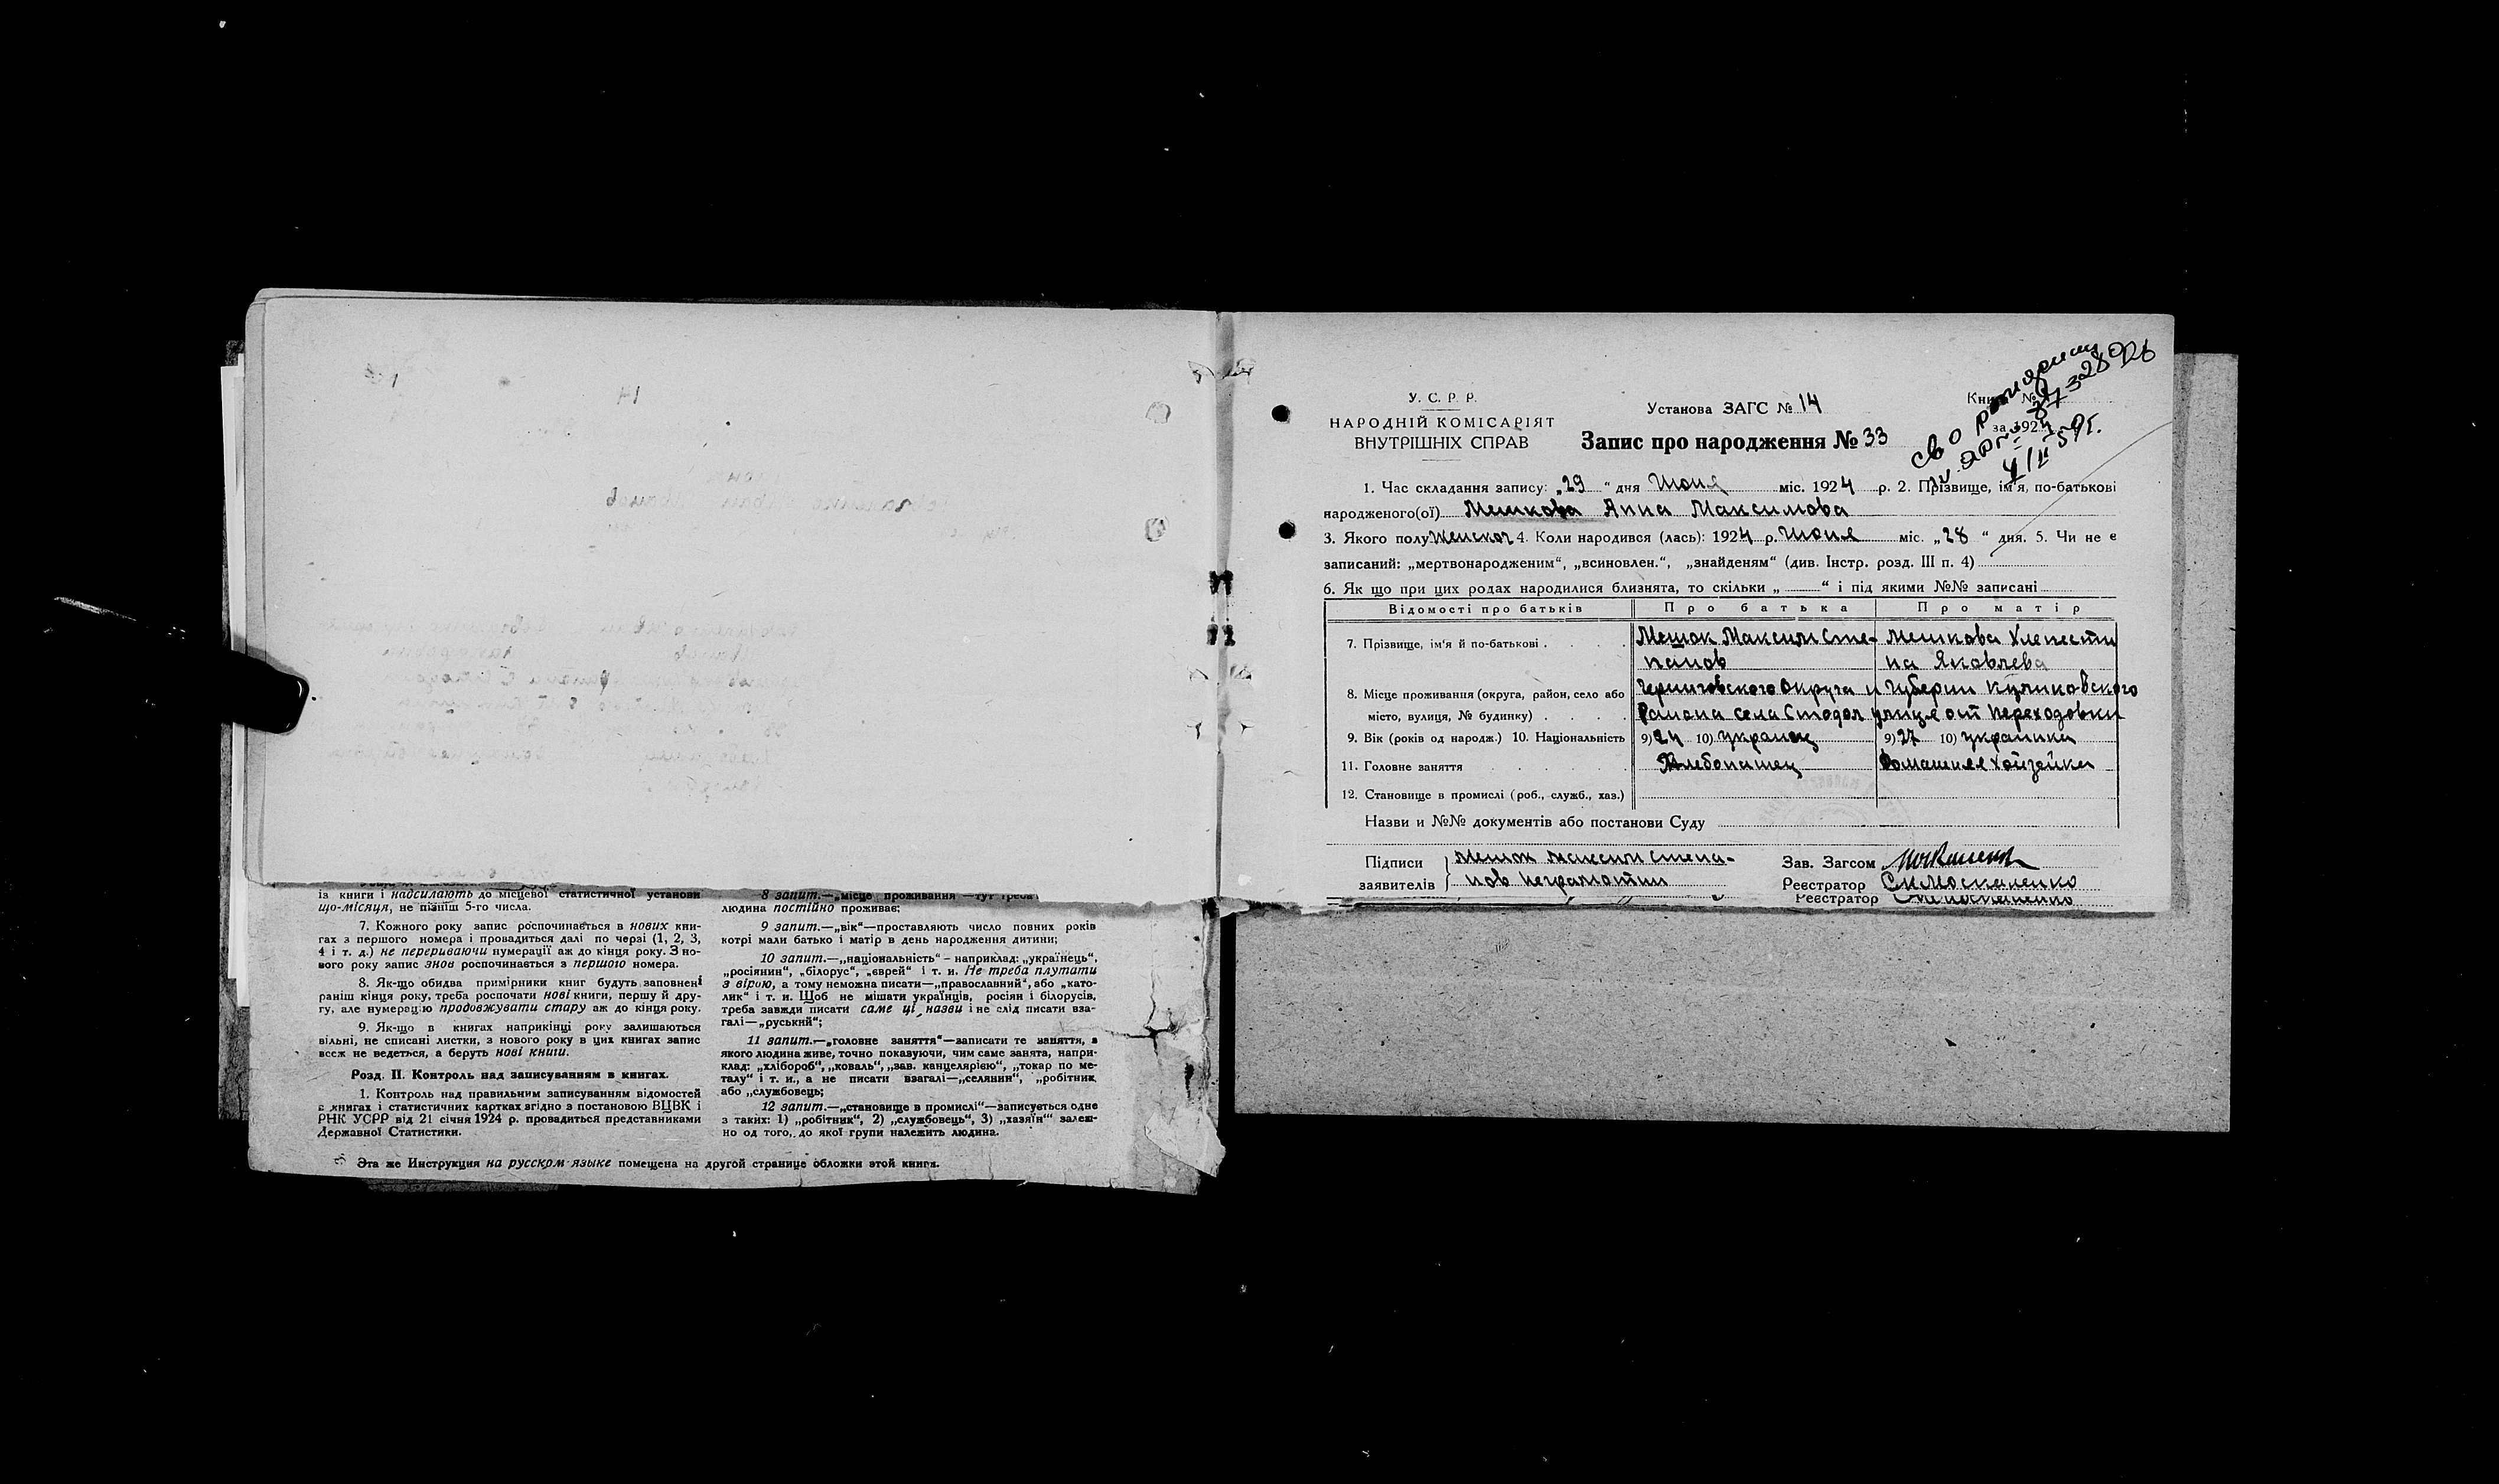 із книги і надсилають до місцевої статистичної установи
що-місяця, не пізніш 5-го числа.
7. Кожного року запис роспочинається в нових кни-
гах з першого номера і провадиться далі по черзі (1, 2, 3,
4 і т. д.) не перериваючи нумерації аж до кінця року. З но-
вого року запис знов роспочинається з першого номера.
8. Як-що обидва примірники книг будуть заповнені
раніш кінця року, треба роспочати нові книги, першу й дру-
гу, але нумерацію продовжувати стару аж до кінця року.
9. Як-що в книгах наприкінці року залишаються
вільні, не списані листки, з нового року в цих книгах запис
всеж не ведеться, а беруть нові книги.
Розд. II. Контроль над записуванням в книгах.
1. Контроль над правильним записуванням відомостей
в книгах і статистичних картках згідно з постановою ВЦВК і
РНК УСРР від 21 січня 1924 р. провадиться представниками
Державної Статистики.
8 запит.—„місце проживання—тут треба
людина постійно проживає;
9 запит.—„вік“—проставляють число повних років
котрі мали батько і матір в день народження дитини;
10 запит.—„національність“ – наприклад: „українець“,
„росіянин“, „білорус“, „єврей“ і т. и. Не треба плутати
з вірою, а тому неможна писати—„православний“, або „като-
лик“ і т. и. Щоб не мішати українців, росіян і білорусів,
треба завжди писати саме ці назви і не слід писати вза-
галі—„руський“;
11 запит.—„головне заняття“—записати те заняття, з
якого людина живе, точно показуючи, чим саме занята, напри-
клад: „хлібороб“, „коваль“, „зав. канцелярією“, „токар по ме-
талу“ і т. и., а не писати взагалі—„селянин“, „робітник
або „службовець;
12 запит.—„становище в промислі“—записується одне
з таких: 1) „робітник“, 2) „службовець“, 3) „хазяїн“ залеж-
но од того, до якої групи належить людина.
Эта же Инструкция на русском языке помещена на другой странице обложки этой книги.
У. С. Р. Р.
НАРОДНІЙ КОМІСАРІЯТ
ВНУТРІШНІХ СПРАВ
Установа ЗАГС № 14
Запис про народження № 33
Книга №
за 192
1. Час складання запису: „29“ дня Июня міс. 1924 р. 2. Прізвище, ім'я, по-батькові
народженого(ої) Мешкова Анна Максимова
3. Якого полу женског 4. Коли народився (лась): 1924 р. Июня міс. „28“ дня. 5. Чи не є
записаний: „мертвонародженим“, „всиновлен.“, „знайденям“ (див. Інстр. розд. III п. 4)
6. Як що при цих родах народилися близнята, то скільки „ “ і під якими №№ записані
Відомості про батьків Про батька Про матір
7. Прізвище, ім'я й по-батькові . . . . Мешок Максим Сте- Мешкова
панов на Яковлева
8. Місце проживання (округа, район, село або Черниговского Округа и Губернии Куликовского
місто, вулиця, № будинку) . . . . Района села Стодол улица от Переходовки
9. Вік (років од народж.) 10. Національність 9) 24 10) украинец 9) 27 10) украинки
11. Головне заняття Хлебопашец Домашняя хозяйки
12. Становище в промислі (роб., служб., хаз.)
Назви и №№ документів або постанови Суду
Підписи заявителів Мешок Максим Степа-
нов неграмотни
Зав. Загсом
Реєстратор Москаленко
Реєстратор